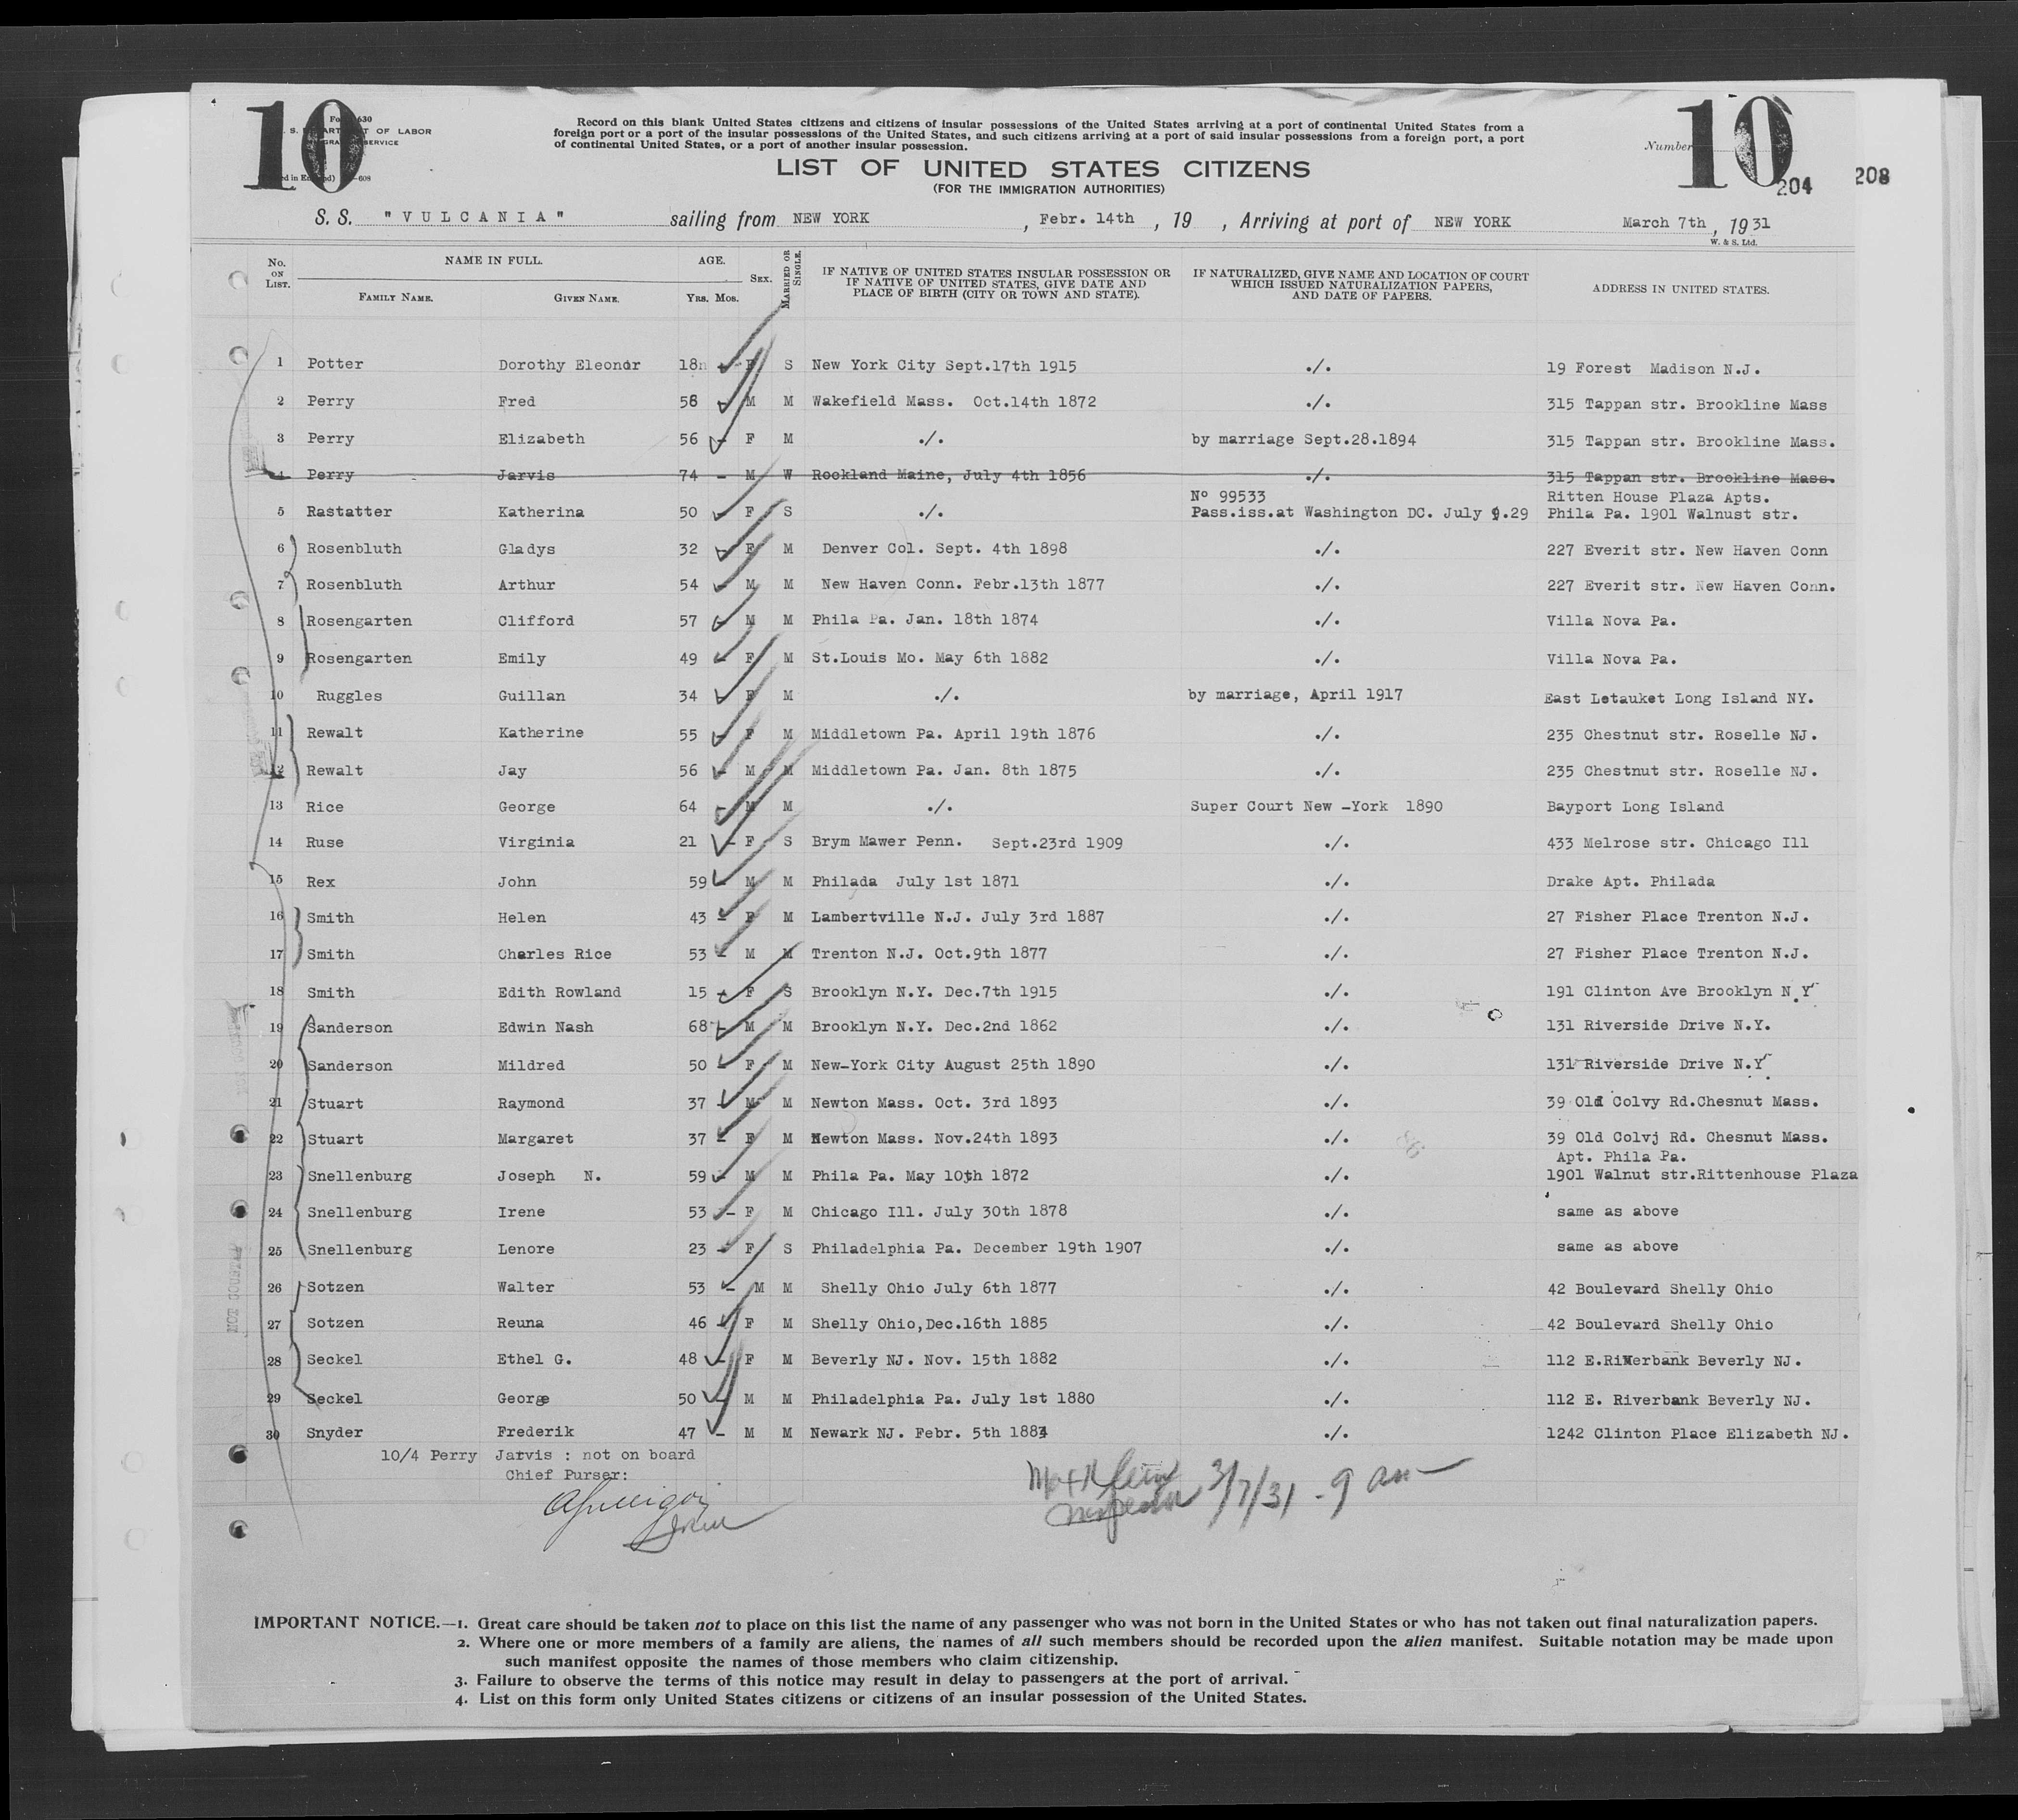 10
10
Record on this blank United States citizens and citizens of insular possessions of the United States arriving at a port of continental United States from a
foreign port or a port of the insular possessions of the United States, and such citizens arriving at a port of said insular possessions from a foreign port, a port
of continental United States, or a port of another insular possession.
OF LABOR
SERVICE
Number
LIST OF UNITED STATES CITIZENS
(FOR THE IMMIGRATION AUTHORITIES)
204 208
S. S. "VULCANIA" sailing from NEW YORK , Febr. 14th , 19 , Arriving at port of NEW YORK March 7th , 1931
W. & S. Ltd.
No. ON LIST. NAME IN FULL. AGE. SEX. MARRIED OR SINGLE. IF NATIVE OF UNITED STATES INSULAR POSSESSION OR IF NATIVE OF UNITED STATES, GIVE DATE AND PLACE OF BIRTH (CITY OR TOWN AND STATE). IF NATURALIZED, GIVE NAME AND LOCATION OF COURT WHICH ISSUED NATURALIZATION PAPERS, AND DATE OF PAPERS. ADDRESS IN UNITED STATES.
FAMILY NAME. GIVEN NAME. YRS. MOS.
1 Potter Dorothy Eleonor 18 - F S New York City Sept.17th 1915 ./. 19 Forest Madison N.J.
2 Perry Fred 58 - M M Wakefield Mass. Oct.14th 1872 ./. 315 Tappan str. Brookline Mass
3 Perry Elizabeth 56 - F M ./. by marriage Sept.28.1894 315 Tappan str. Brookline Mass.
4 Perry Jarvis 74 - M W Rockland Maine, July 4th 1856 ./. 315 Tappan str. Brookline Mass.
Nº 99533 Ritten House Plaza Apts.
5 Rastatter Katherina 50 - F S ./. Pass.iss.at Washington DC. July 9.29 Phila Pa. 1901 Walnust str.
6 Rosenbluth Gladys 32 - F M Denver Col. Sept. 4th 1898 ./. 227 Everit str. New Haven Conn
7 Rosenbluth Arthur 54 - M M New Haven Conn. Febr.13th 1877 ./. 227 Everit str. New Haven Conn.
8 Rosengarten Clifford 57 - M M Phila Pa. Jan. 18th 1874 ./. Villa Nova Pa.
9 Rosengarten Emily 49 - F M St.Louis Mo. May 6th 1882 ./. Villa Nova Pa.
10 Ruggles Guillan 34 - F M ./. by marriage, April 1917 East Letauket Long Island NY.
11 Rewalt Katherine 55 - F M Middletown Pa. April 19th 1876 ./. 235 Chestnut str. Roselle NJ.
12 Rewalt Jay 56 - M M Middletown Pa. Jan. 8th 1875 ./. 235 Chestnut str. Roselle NJ.
13 Rice George 64 - M M ./. Super Court New -York 1890 Bayport Long Island
14 Ruse Virginia 21 - F S Brym Mawer Penn. Sept.23rd 1909 ./. 433 Melrose str. Chicago Ill
15 Rex John 59 - M M Philada July 1st 1871 ./. Drake Apt. Philada
16 Smith Helen 43 - F M Lambertville N.J. July 3rd 1887 ./. 27 Fisher Place Trenton N.J.
17 Smith Charles Rice 53 - M M Trenton N.J. Oct.9th 1877 ./. 27 Fisher Place Trenton N.J.
18 Smith Edith Rowland 15 - F S Brooklyn N.Y. Dec.7th 1915 ./. 191 Clinton Ave Brooklyn N.Y
19 Sanderson Edwin Nash 68 - M M Brooklyn N.Y. Dec.2nd 1862 ./. 131 Riverside Drive N.Y.
20 Sanderson Mildred 50 - F M New-York City August 25th 1890 ./. 131 Riverside Drive N.Y.
21 Stuart Raymond 37 - M M Newton Mass. Oct. 3rd 1893 ./. 39 Old Colvy Rd.Chesnut Mass.
22 Stuart Margaret 37 - F M Newton Mass. Nov.24th 1893 ./. 39 Old Colvj Rd. Chesnut Mass.
Apt. Phila Pa.
23 Snellenburg Joseph N. 59 - M M Phila Pa. May 10th 1872 ./. 1901 Walnut str.Rittenhouse Plaza
24 Snellenburg Irene 53 - F M Chicago Ill. July 30th 1878 ./. same as above
25 Snellenburg Lenore 23 - F S Philadelphia Pa. December 19th 1907 ./. same as above
26 Sotzen Walter 53 - M M Shelly Ohio July 6th 1877 ./. 42 Boulevard Shelly Ohio
27 Sotzen Reuna 46 - F M Shelly Ohio,Dec.16th 1885 ./. 42 Boulevard Shelly Ohio
28 Seckel Ethel G. 48 - F M Beverly NJ. Nov. 15th 1882 ./. 112 E.Riverbank Beverly NJ.
29 Seckel George 50 - M M Philadelphia Pa. July 1st 1880 ./. 112 E. Riverbank Beverly NJ.
30 Snyder Frederik 47 - M M Newark NJ. Febr. 5th 1884 ./. 1242 Clinton Place Elizabeth NJ.
10/4 Perry Jarvis : not on board
Chief Purser:
3/7/31 - 9 am
IMPORTANT NOTICE.—1. Great care should be taken not to place on this list the name of any passenger who was not born in the United States or who has not taken out final naturalization papers.
2. Where one or more members of a family are aliens, the names of all such members should be recorded upon the alien manifest. Suitable notation may be made upon
such manifest opposite the names of those members who claim citizenship.
3. Failure to observe the terms of this notice may result in delay to passengers at the port of arrival.
4. List on this form only United States citizens or citizens of an insular possession of the United States.